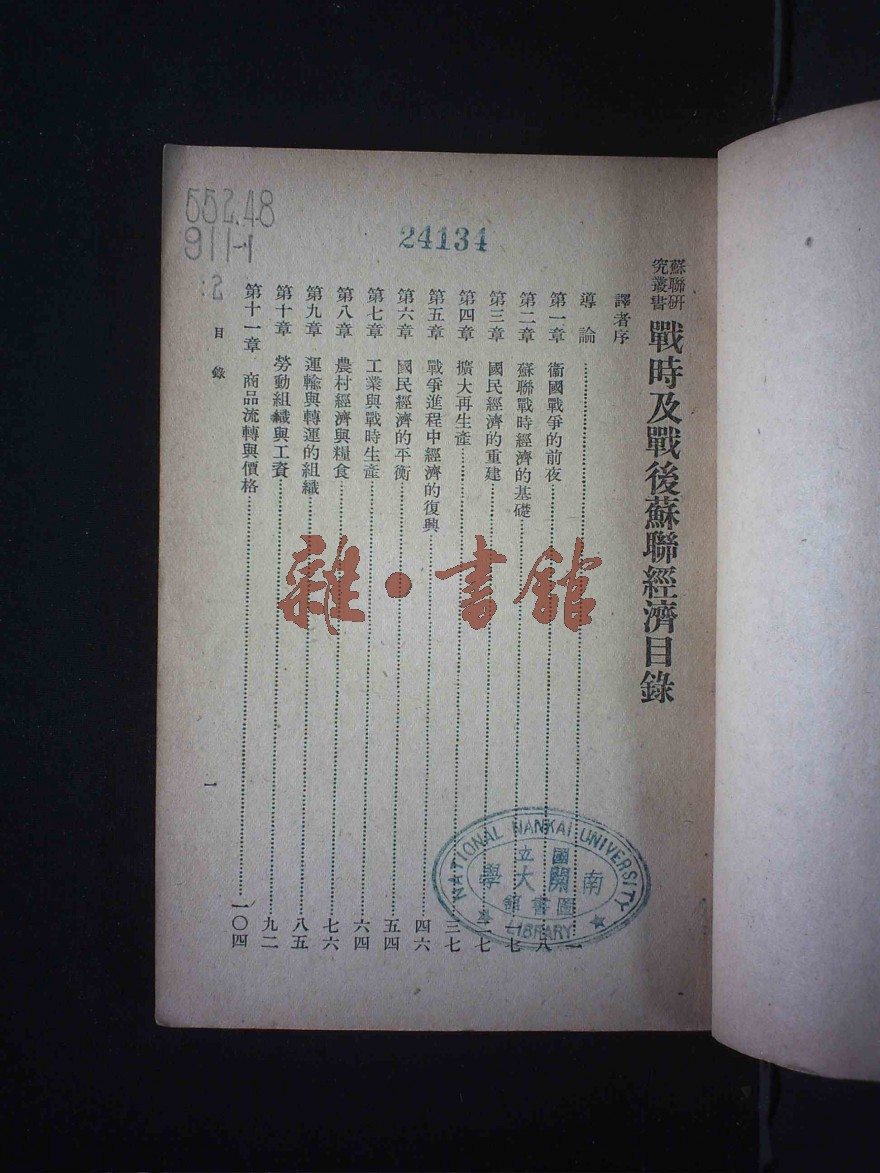 蘇聯研
究叢書
戰時及戰後蘇聯經濟目錄
譯者序
導論……一
第一章 衞國戰爭的前夜……八
第二章 蘇聯戰時經濟的基礎……一七
第三章 國民經濟的重建……二七
第四章 擴大再生產……三七
第五章 戰爭進程中經濟的復興……四六
第六章 國民經濟的平衡……五四
第七章 工業與戰時生產……六四
第八章 農村經濟與糧食……七六
第九章 運輸與轉運的組織……八五
第十章 勞動組織與工資……九二
第十一章 商品流轉與價格……一〇四
目錄
一
552.48
911-1
:2
24134
NATIONAL NANKAI UNIVERSITY
國立
南開大學
圖書館
LIBRARY
雜·書館